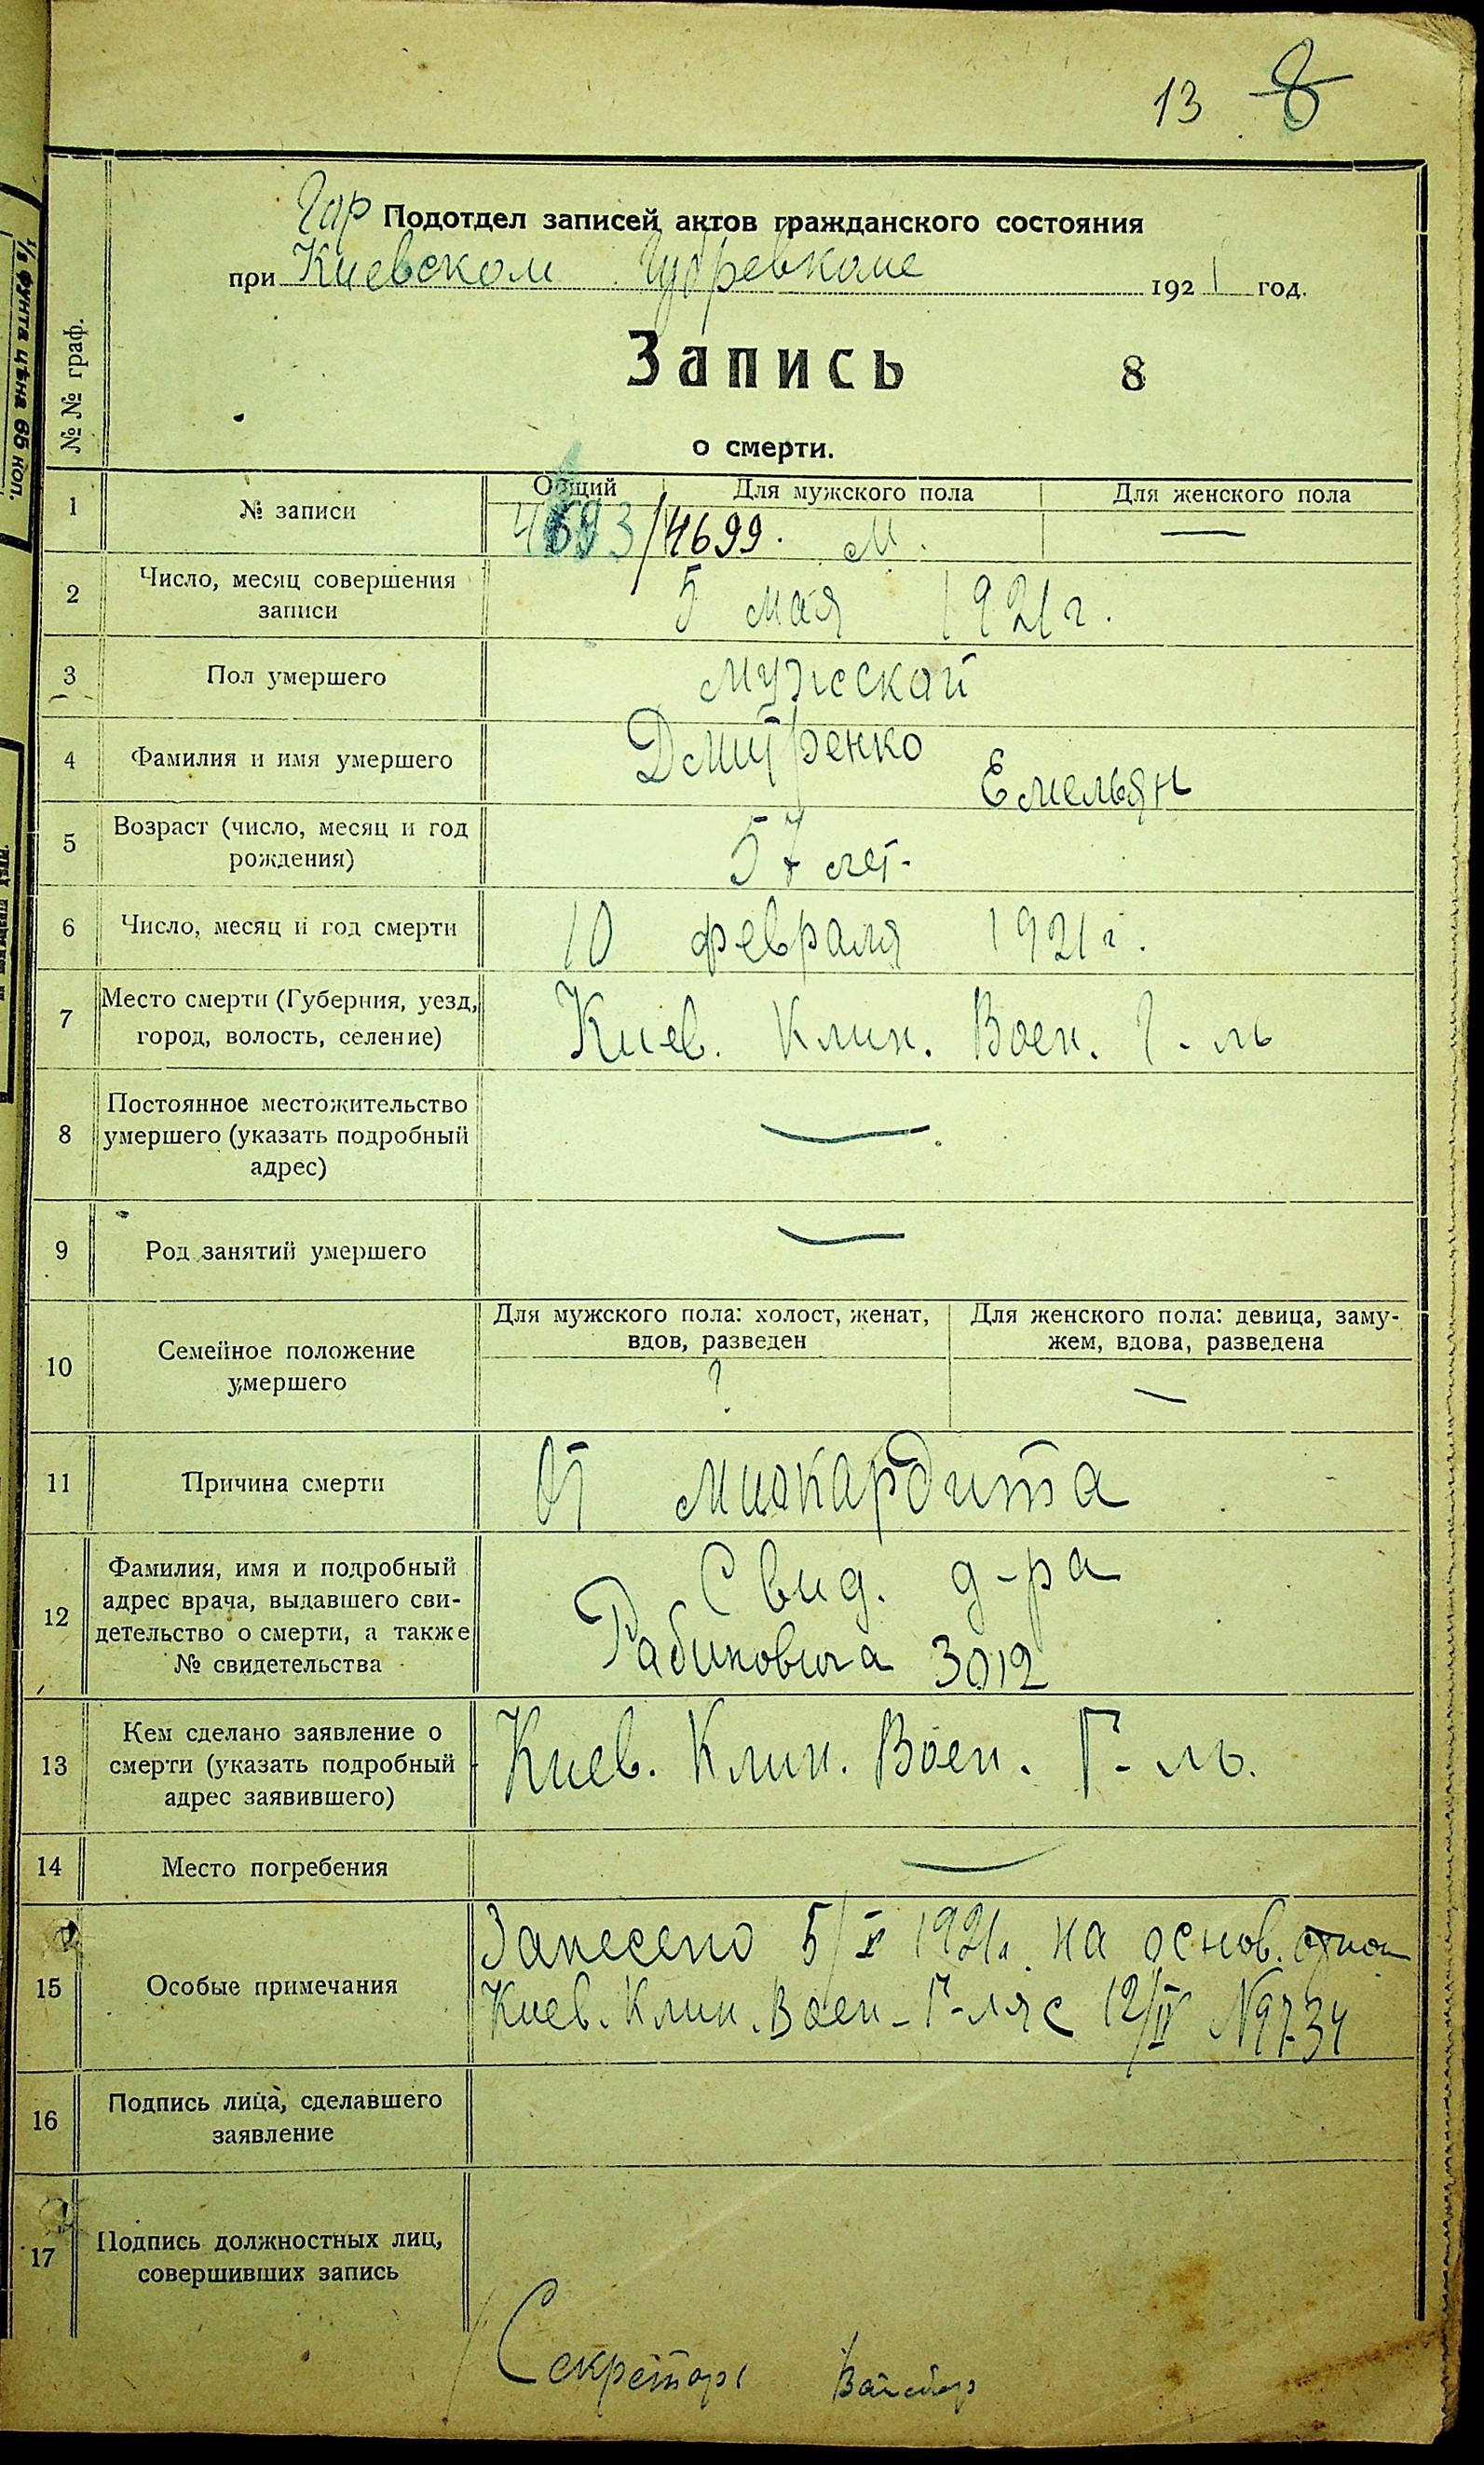 13 8
Гор Подотдел записей актов гражданского состояния
при Киевском Губревкоме 1921 год.
№ № граф.
1/2 фунта цѣна 65 коп.
Запись 8
о смерти.
1 № записи Общий Для мужского пола Для женского пола
4693/4699. М. —
2 Число, месяц совершения
записи 5 мая 1921 г.
3 Пол умершего мужской
4 Фамилия и имя умершего Дмитренко Емельян
5 Возраст (число, месяц и год
рождения) 57 лет.
6 Число, месяц и год смерти 10 февраля 1921 г.
7 Место смерти (Губерния, уезд,
город, волость, селение) Киев. Клин. Воен. Г-ль
8 Постоянное местожительство
умершего (указать подробный
адрес) —
9 Род занятий умершего —
10 Семейное положение
умершего
Для мужского пола: холост, женат,
вдов, разведен
?
Для женского пола: девица, заму-
жем, вдова, разведена
—
11 Причина смерти От миокардита
12 Фамилия, имя и подробный
адрес врача, выдавшего сви-
детельство о смерти, а также
№ свидетельства
Свид. д-ра
Рабиновича 3012
13 Кем сделано заявление о
смерти (указать подробный
адрес заявившего)
Киев. Клин. Воен. Г-ль.
14 Место погребения —
15 Особые примечания
Занесено 5/V 1921г. на основ. отнош
Киев. Клин. Воен. Г-ля с 12/IV №9734
16 Подпись лица, сделавшего
заявление
17 Подпись должностных лиц,
совершивших запись
Секретарь